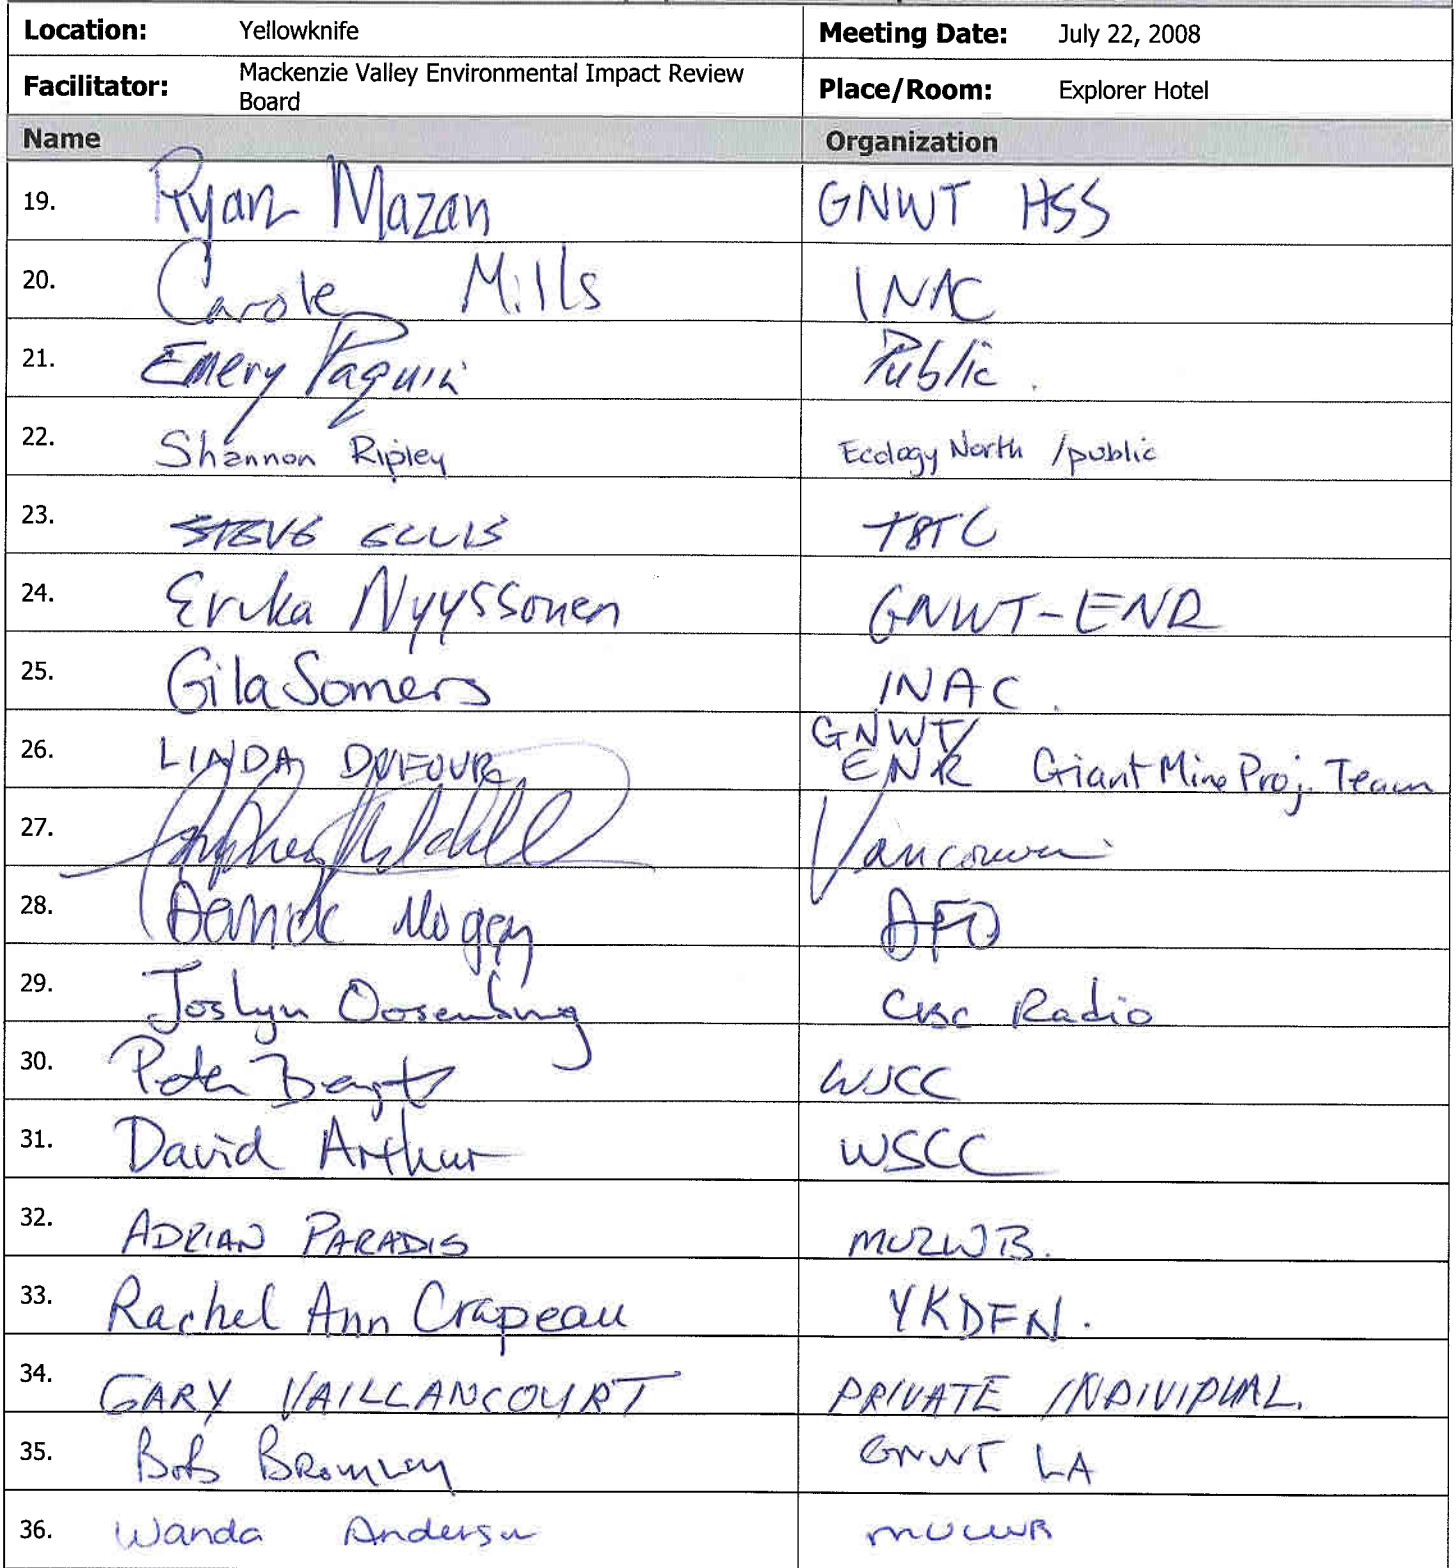 Location: Yellowknife Meeting Date: July 22, 2008
Facilitator: Mackenzie Valley Environmental Impact Review Board Place/Room: Explorer Hotel
Name Organization
19. Ryan Mazan GNWT HSS
20. Carole Mills INAC
21. Emery Paquin Public.
22. Shannon Ripley Ecology North /public
23. STEVE ELLIS T8TC
24. Erika Nyyssonen GNWT-ENR
25. Gila Somers INAC.
26. LINDA DUFOUR GNWT/ ENR Giant Mine Proj. Team
27. Vancouver
28. DFO
29. Joslyn Oosenbrug CBC Radio
30. Peter WSCC
31. David Arthur WSCC
32. ADRIAN PARADIS MVLWB.
33. Rachel Ann Crapeau YKDFN.
34. GARY VAILLANCOURT PRIVATE INDIVIDUAL.
35. Bob Bromley GNWT LA
36. Wanda Anderson MVLWB